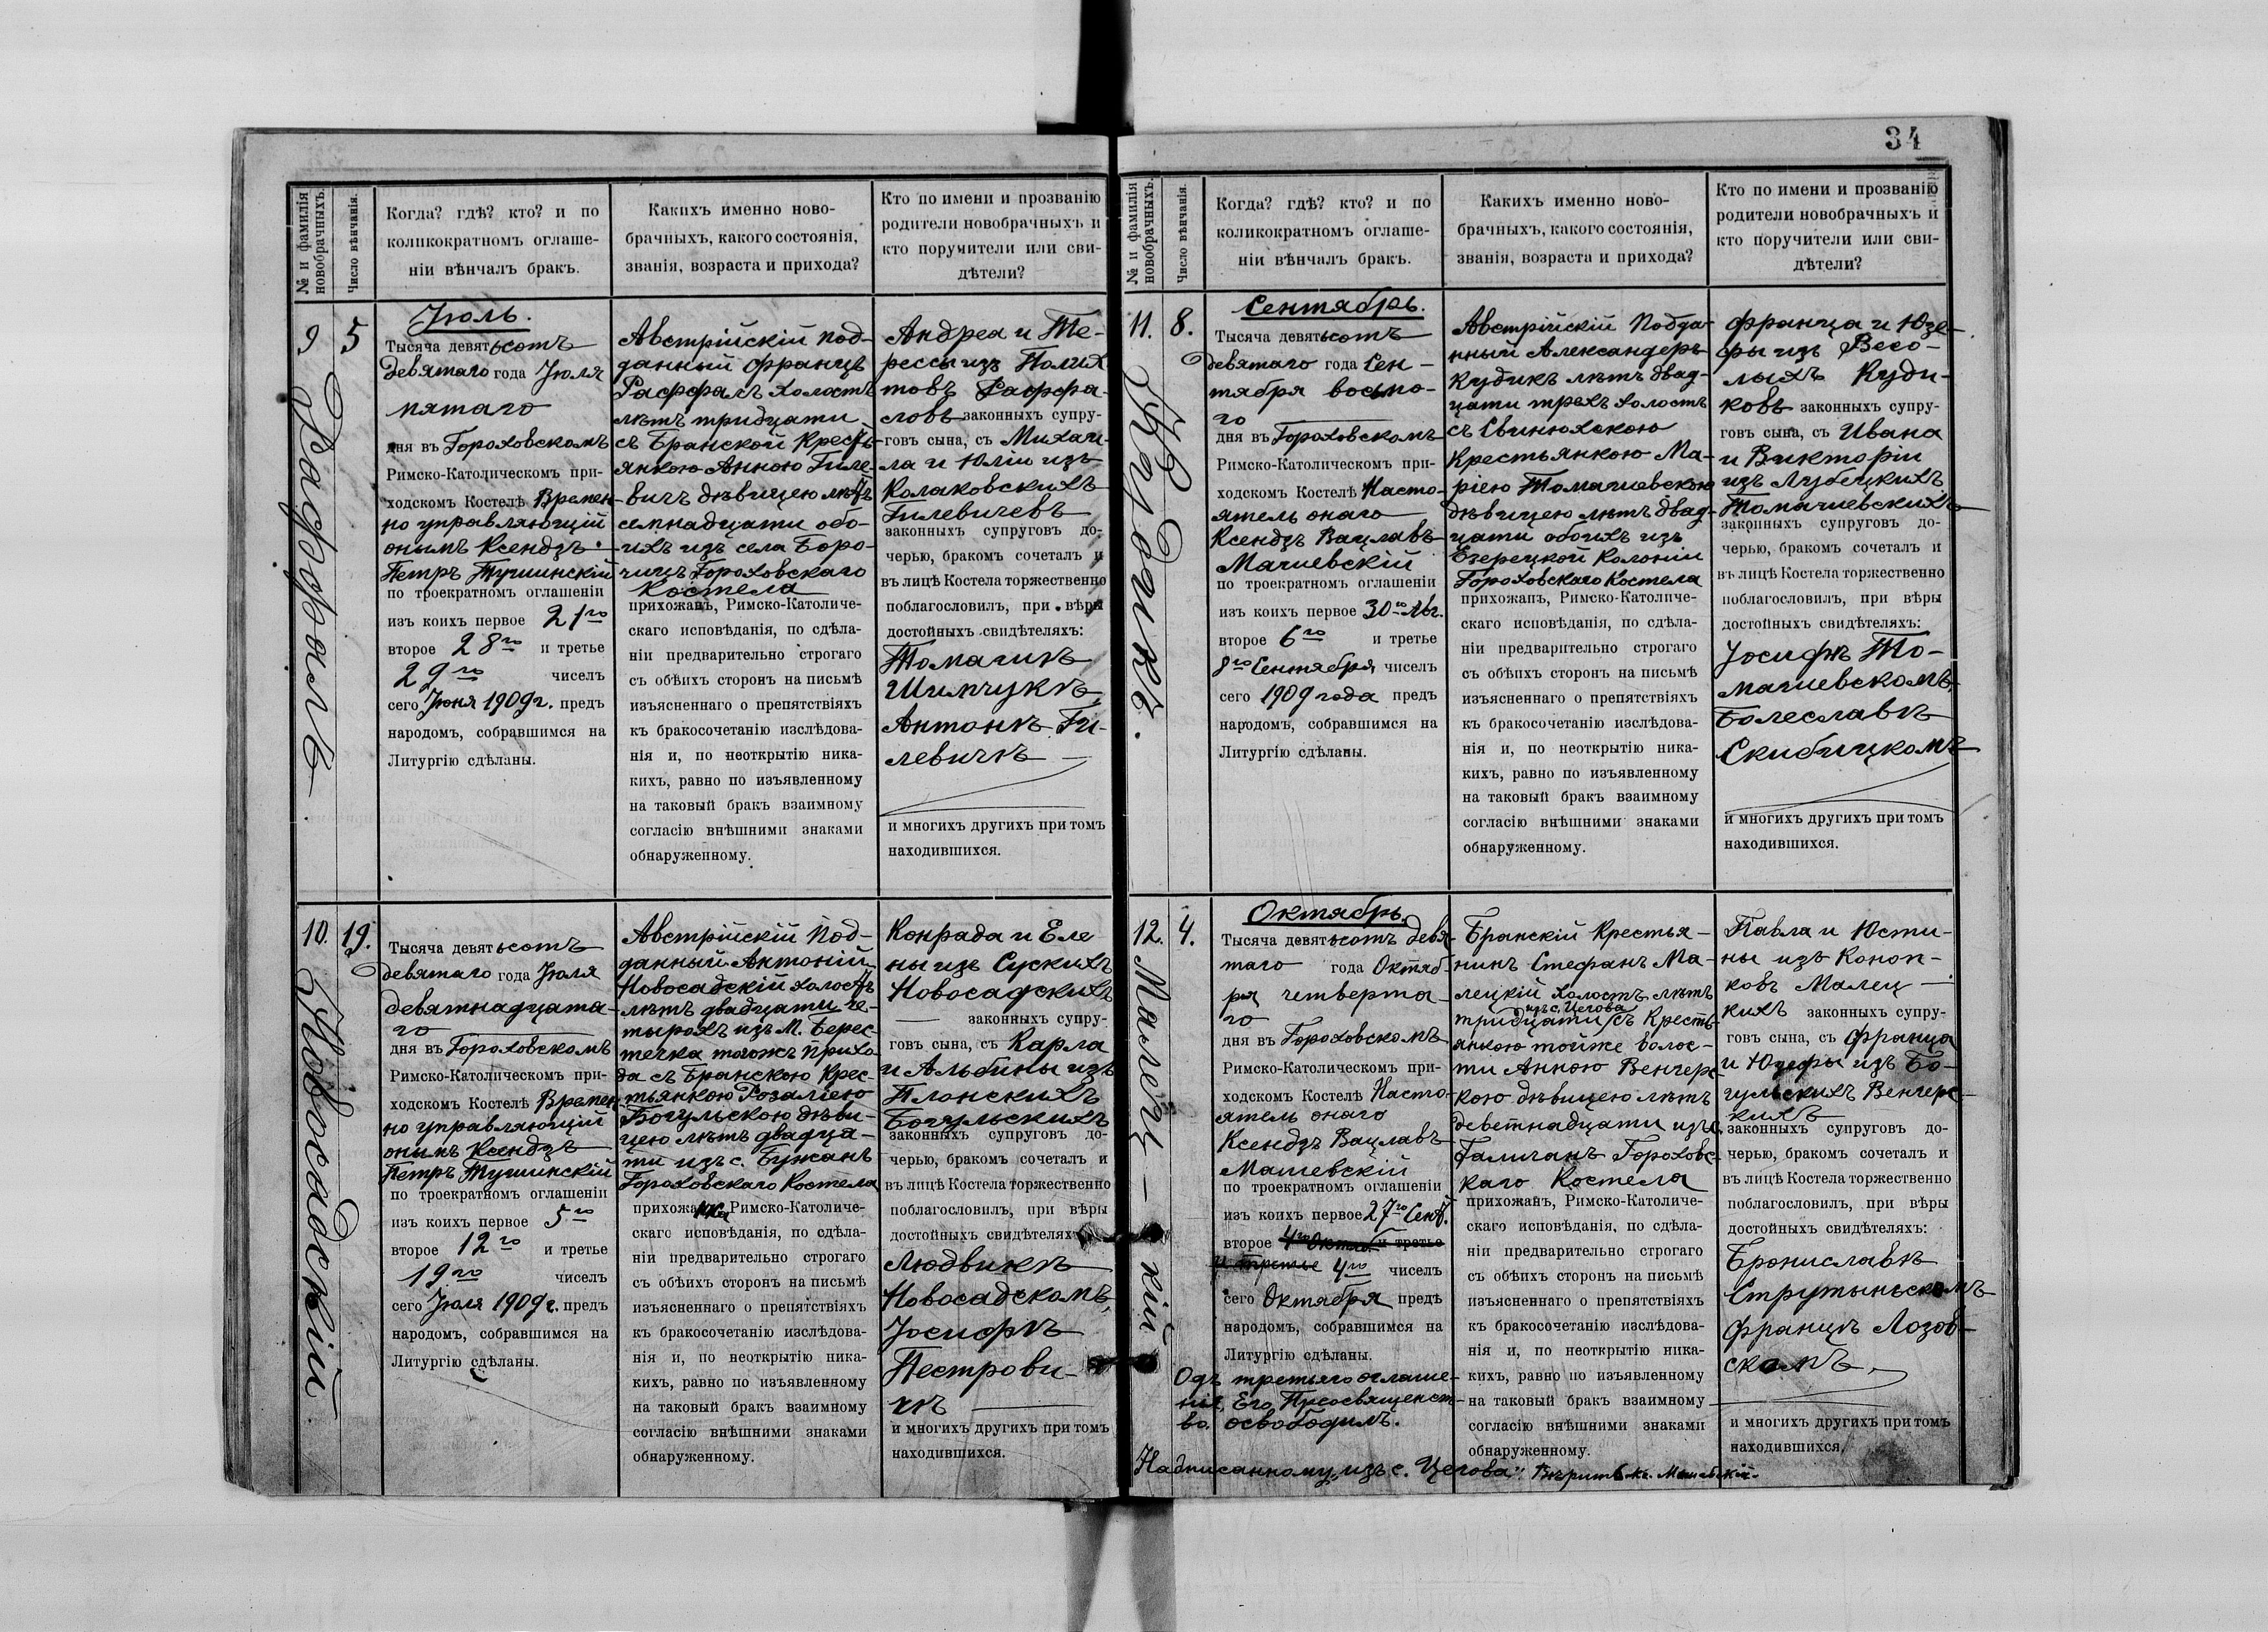 34
№ и фамилія
новобрачныхъ.
Число вѣнчанія.
Когда? гдѣ? кто? и по
коликократномъ оглаше-
ніи вѣнчалъ бракъ.
Какихъ именно ново-
брачныхъ, какого состоянія,
званія, возраста и прихода?
Кто по имени и прозванію
родители новобрачныхъ и
кто поручители или сви-
дѣтели?
9
Раффалъ
5
Іюль.
Тысяча девятьсотъ
девятаго года Іюля
пятаго
дня въ Гороховскомъ
Римско-Католическомъ при-
ходскомъ Костелѣ Времен-
но управляющій
онымъ Ксендзъ
Петръ Тушинскій
по троекратномъ оглашеніи
изъ коихъ первое 21го
второе 28го и третье
29го чиселъ
сего Іюня 1909 г. предъ
народомъ, собравшимся на
Литургію сдѣланы.
Австрійскій под-
данный Францъ
Раффалъ холостъ
лѣтъ тридцати
съ Бранской Кресть-
янкою Анною Гиле-
вичъ дѣвицею лѣтъ
семнадцати обо-
ихъ изъ села Боро-
чицъ Гороховскаго
Костела
прихожанъ, Римско-Католиче-
скаго исповѣданія, по сдѣла-
ніи предварительно строгаго
съ обѣихъ сторонъ на письмѣ
изъясненнаго о препятствіяхъ
къ бракосочетанію изслѣдова-
нія и, по неоткрытію ника-
кихъ, равно по изъявленному
на таковый бракъ взаимному
согласію внѣшними знаками
обнаруженному.
Андрея и Те-
рессы изъ
Раффа-
ловъ законныхъ супру-
говъ сына, съ Михаи-
ла и Юліи изъ
Колаковскихъ
Гилевичевъ
законныхъ супруговъ до-
черью, бракомъ сочеталъ и
въ лицѣ Костела торжественно
поблагословилъ, при вѣры
достойныхъ свидѣтеляхъ:
Шимчукѣ,
Антонѣ Ги-
левичѣ
и многихъ другихъ при томъ
находившихся.
10.
Новосадскій
19.
Тысяча девятьсотъ
девятаго года Іюля
девятнадцата-
го
дня въ Гороховскомъ
Римско-Католическомъ при-
ходскомъ Костелѣ Времен-
но управляющій
онымъ Ксендзъ
Петръ Тушинскій
по троекратномъ оглашеніи
изъ коихъ первое 5го
второе 12го и третье
19го чиселъ
сего Іюля 1909 г. предъ
народомъ, собравшимся на
Литургію сдѣланы.
Австрійскій Под-
данный Антоній
Новосадскій холостъ
лѣтъ двадцати че-
тырехъ изъ М. Берес-
течка тогожъ прихо-
да съ Бранскою Крес-
тьянкою Розаліею
Богульскою дѣви-
цею лѣтъ двадца-
ти изъ с. Бужанъ
Гороховскаго Костела
Римско-Католиче-
скаго исповѣданія, по сдѣла-
ніи предварительно строгаго
съ обѣихъ сторонъ на письмѣ
изъясненнаго о препятствіяхъ
къ бракосочетанію изслѣдова-
нія и, по неоткрытію ника-
кихъ, равно по изъявленному
на таковый бракъ взаимному
согласію внѣшними знаками
обнаруженному.
Конрада и Еле
ны изъ Сускихъ
Новосадскихъ
законныхъ супру-
говъ сына, съ Карла
и Альбины изъ
Плонскихъ
Богульскихъ
законныхъ супруговъ до-
черью, бракомъ сочеталъ и
въ лицѣ Костела торжественно
поблагословилъ, при вѣры
достойныхъ свидѣтеляхъ
Людвикѣ
Новосадскомъ,
Іосифѣ
Пестрови-
чѣ
и многихъ другихъ при томъ
находившихся.
№ и фамилія
новобрачныхъ.
Число вѣнчанія.
Когда? гдѣ? кто? и по
коликократномъ оглаше-
ніи вѣнчалъ бракъ.
Какихъ именно ново-
брачныхъ, какого состоянія,
званія, возраста и прихода?
Кто по имени и прозванію
родители новобрачныхъ и
кто поручители или сви-
дѣтели?
11.
Кудикъ.
8.
Сентябрь.
Тысяча девятьсотъ
девятаго года Сен-
тября восьмо-
го
дня въ Гороховскомъ
Римско-Католическомъ при-
ходскомъ Костелѣ Насто-
ятель онаго
Ксендзъ Вацлавъ
Мачиевскій
по троекратномъ оглашеніи
изъ коихъ первое 30го Авг.
второе 6го и третье
8го Сентября чиселъ
сего 1909 года предъ
народомъ, собравшимся на
Литургію сдѣланы.
Австрійскій Подда-
нный Александеръ
Кудикъ лѣтъ двад-
цати трехъ холостъ
съ Свинюхскою
Крестьянкою Ма-
ріею Томашевскою
дѣвицею лѣтъ двад-
цати обоихъ изъ
Езерецкой Колоніи
Гороховскаго Костела
прихожанъ, Римско-Католиче-
скаго исповѣданія, по сдѣла-
ніи предварительно строгаго
съ обѣихъ сторонъ на письмѣ
изъясненнаго о препятствіяхъ
къ бракосочетанію изслѣдова-
нія и, по неоткрытію ника-
кихъ, равно по изъявленному
на таковый бракъ взаимному
согласію внѣшними знаками
обнаруженному.
Франца и Юзе-
фы изъ Весо-
лыхъ Куди-
ковъ законныхъ супру-
говъ сына, съ Ивана
и Викторіи
изъ Лубецкихъ
Томашевскихъ
законныхъ супруговъ до-
черью, бракомъ сочеталъ и
въ лицѣ Костела торжественно
поблагословилъ, при вѣры
достойныхъ свидѣтеляхъ:
Іосифѣ То-
машевскомъ,
Болеславѣ
Скибицкомъ
и многихъ другихъ при томъ
находившихся.
12.
Малец-кій
4.
Октябрь.
Тысяча девятьсотъ девя-
таго года Октяб-
ря четверта-
го
дня въ Гороховскомъ
Римско-Католическомъ при-
ходскомъ Костелѣ Насто-
ятель онаго
Ксендзъ Вацлавъ
Мачиевскій
по троекратномъ оглашеніи
изъ коихъ первое 27го Сент.
второе 4го Октяб. и третье
и третье 4го чиселъ
сего Октября предъ
народомъ, собравшимся на
Литургію сдѣланы.
Одъ третьяго оглаше-
нія Его Преосвященст-
во освободилъ.
Бранскій Крестья-
нинъ Стефанъ Ма-
лецкій холостъ лѣтъ
изъ с. Цегова
тридцати съ Кресть-
янкою тойже волос-
ти Анною Венгерс-
кою дѣвицею лѣтъ
деветнадцати изъ с.
Галичанъ Гороховс-
каго Костела
прихожанъ, Римско-Католиче-
скаго исповѣданія, по сдѣла-
ніи предварительно строгаго
съ обѣихъ сторонъ на письмѣ
изъясненнаго о препятствіяхъ
къ бракосочетанію изслѣдова-
нія и, по неоткрытію ника-
кихъ, равно по изъявленному
на таковый бракъ взаимному
согласію внѣшними знаками
обнаруженному.
Павла и Юсти-
ны изъ Коноп-
ковъ Малец-
кихъ законныхъ супру-
говъ сына, съ Франца
и Юзефы изъ Бо-
гульскихъ Венгерс-
кихъ
законныхъ супруговъ до-
черью, бракомъ сочеталъ и
въ лицѣ Костела торжественно
поблагословилъ, при вѣры
достойныхъ свидѣтеляхъ:
Брониславѣ
Струтыньскомъ
Францѣ Лозов-
скомъ,
и многихъ другихъ при томъ
находившихся.
Надписанному „изъ с. Цегова“ Вѣрить Кс. Мачиевскій.